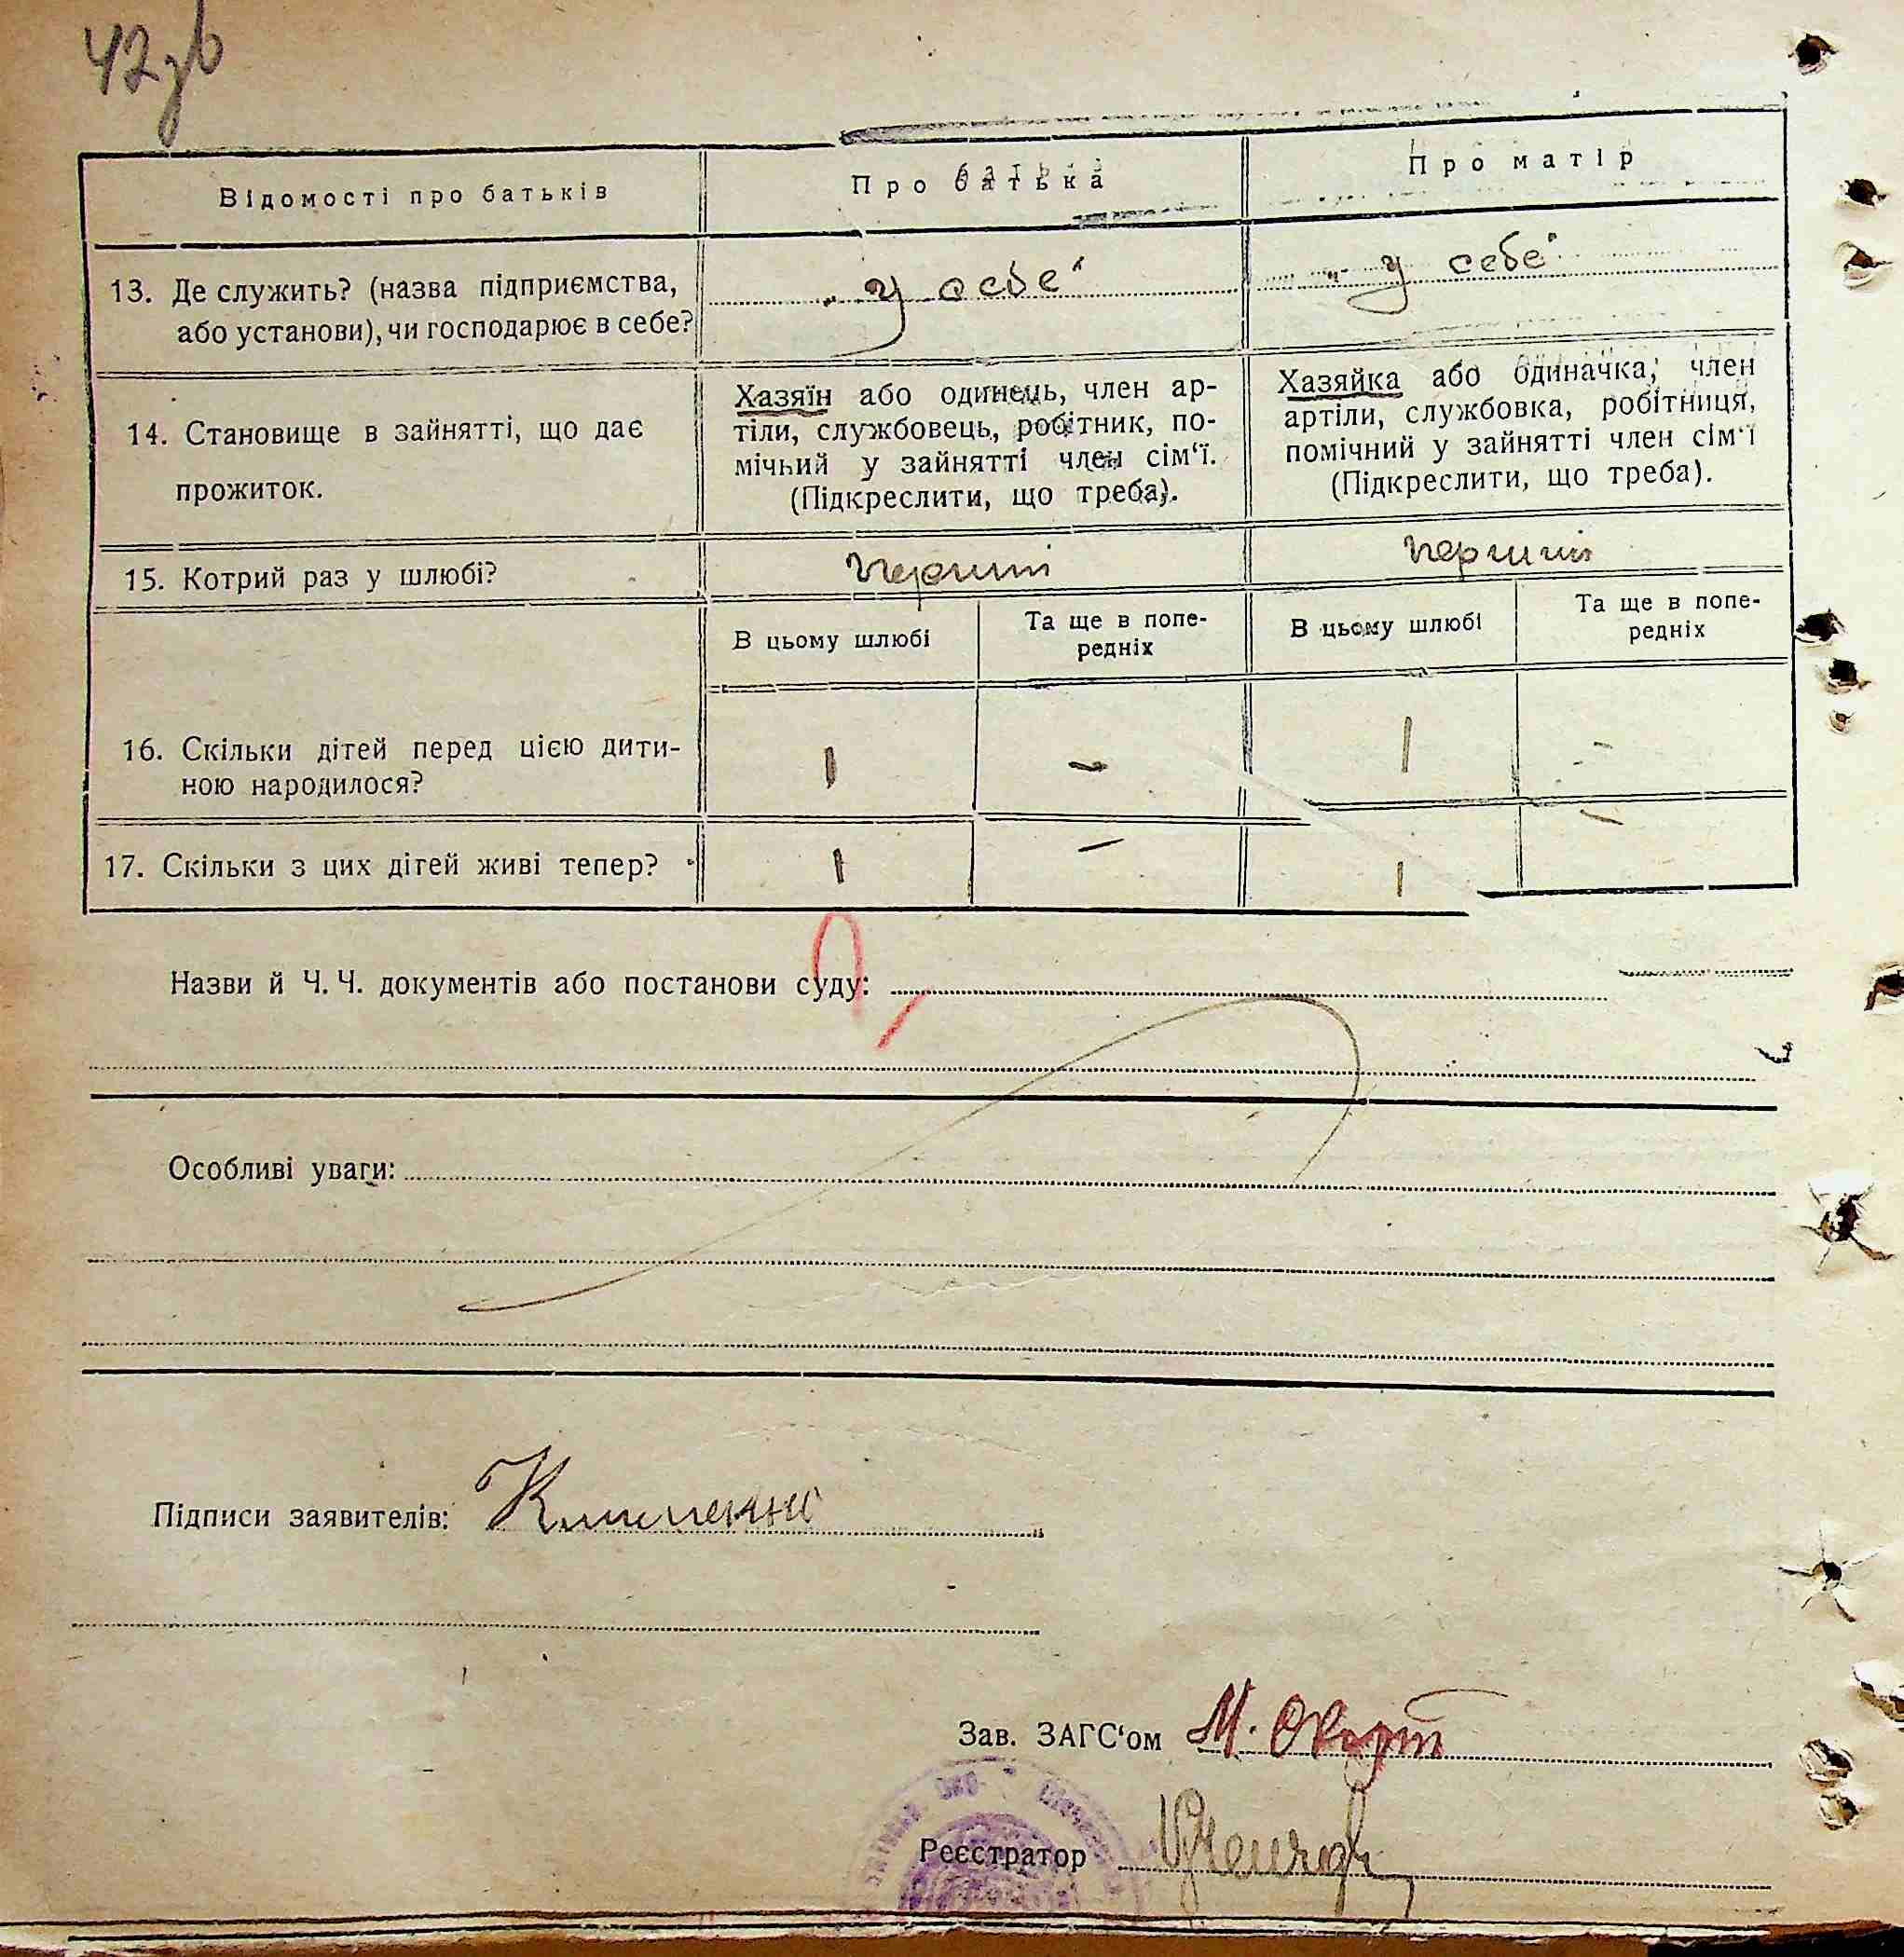 42зв
Відомості про батьків
Про батька
Про матір
13. Де служить? (назва підприємства,
або установи), чи господарює в себе?
„у себе“
„у себе“
14. Становище в зайнятті, що дає
прожиток.
Хазяїн або одинець, член ар-
тіли, службовець, робітник, по-
мічний у зайнятті член сім‘ї.
(Підкреслити, що треба).
Хазяйка або одиначка, член
артіли, службовка, робітниця,
помічний у зайнятті член сім‘ї
(Підкреслити, що треба).
15. Котрий раз у шлюбі?
перший
перший
В цьому шлюбі
Та ще в попе-
редніх
В цьому шлюбі
Та ще в попе-
редніх
16. Скільки дітей перед цією дити-
ною народилося?
1 – 1 –
17. Скільки з цих дітей живі тепер?
1 – 1 –
Назви й Ч. Ч. документів або постанови суду:
Особливі уваги:
Підписи заявителів:
Зав. ЗАГС‘ом М.
Реєстратор